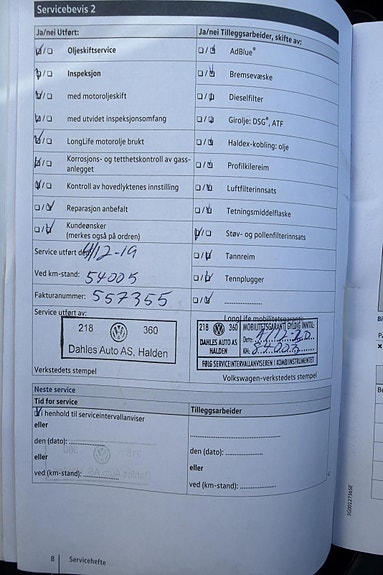 Servicebevis 2
Ja/nei Utført:
Ja/nei Tilleggsarbeider, skifte av:
Oljeskiftservice
AdBlue®
Inspeksjon
Bremsevæske
med motoroljeskift
Dieselfilter
med utvidet inspeksjonsomfang
Girolje: DSG®, ATF
LongLife motorolje brukt
Haldex-kobling: olje
Korrosjons- og tetthetskontroll av gass-
anlegget
Profilkilereim
Kontroll av hovedlyktenes innstilling
Luftfilterinnsats
Reparasjon anbefalt
Tetningsmiddelflaske
Kundeønsker
(merkes også på ordren)
Støv- og pollenfilterinnsats
Service utført den 4/12-19
Tannreim
Ved km-stand: 54005
Tennplugger
Fakturanummer: 557355
Service utført av:
LongLife mobilitetsgaranti
218 360
Dahles Auto AS, Halden
218 360
DAHLES AUTO AS
HALDEN
MOBILITETSGARANTI GYLDIG INNTIL:
Dato:
Km:
FØLG SERVICEINTERVALLANVISEREN I KOMBINSTRUMENTET
Verkstedets stempel
Volkswagen-verkstedets stempel
Neste service
Tid for service
Tilleggsarbeider:
I henhold til serviceintervallanviser
eller
den (dato):
den (dato):
eller
eller
ved (km-stand):
ved (km-stand):
8 Servicehefte